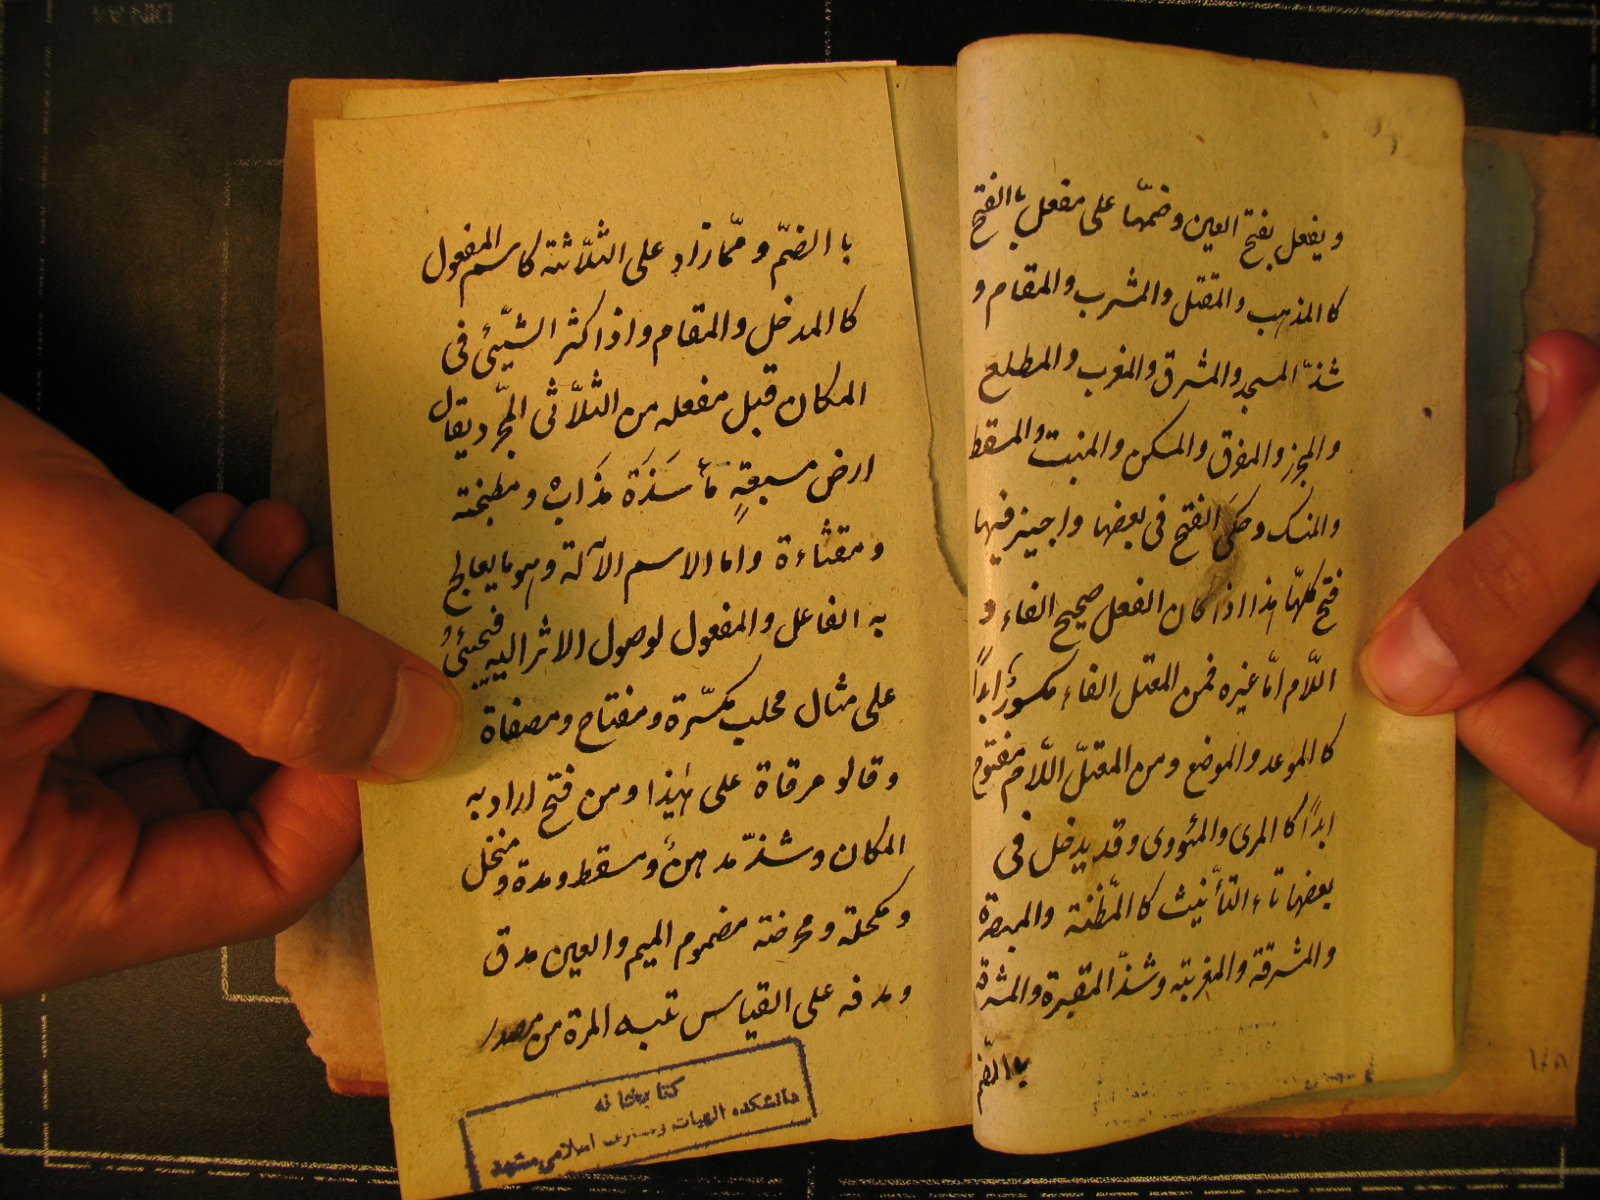 و يفعل بفتح العين و ضمّها على مفعل با الفتح
كا المذهب و المقتل و المشرب و المقام و
شذّ المسجد و المشرق و المغرب و المطلع
و المجزر و المفرق و المسكن و المنبت و المسقط
و المنسك و حكى الفتح فى بعضها و اجيز فيها
فتح كلهّا هذا اذا كان الفعل صحيح الفاء و
اللّام امّا غيره فمن المعتل الفاء مكسورٌ ابداً
كا الموعد و الموضع و من المعتلّ اللّام مفتوح
ابداً كا المرمى و المئووى و قد يدخل فى
بعضها تاء التأنيث كا المظّنة و المبصرة
و المشرقة و المغربته و شذّ المقبرة و المشرقة
با الضّم
با الضّم و ممّا زاد على الثلّاثته كاسم المفعول
كا المدخل و المقام و اذا كثر الشيّئى فى
المكان قيل مفعله من الثلّاثى المجّرد يقال
ارض مسبعةٍ مأسَدَة مذابْ و مطبخته
و مقثاءة و اما الاسم الآلة و هو ما يعالج
به الفاعل و المفعول لوصول الاثر اليه فيجئىُ
على مثال محلب مكسّرة و مفتاح و مصفاة
و قالو مرقاة على هٰذا و من فتح اراد به
المكان و شذّ مدهنٌ و مسقط و مدق و منخل
و مكحلة و محرضته مضموم الميم و العين مدق
و مدقه على القياس تنبه المرة من مصدر
كتابخانه
دانشكده الهيات و معارف اسلامى مشهد